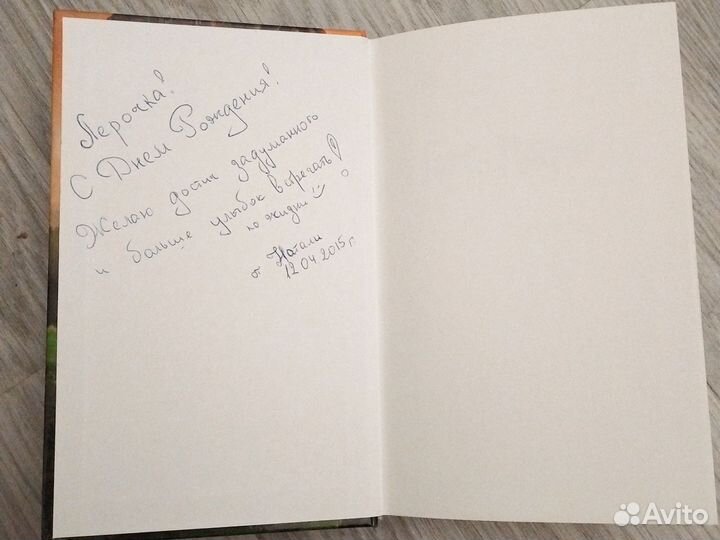 Лерочка!
С Днем Рождения!
Желаю достич задуманного
и больше улыбок встречать
по жизни!
от Натали
12.04.2015г.
Avito